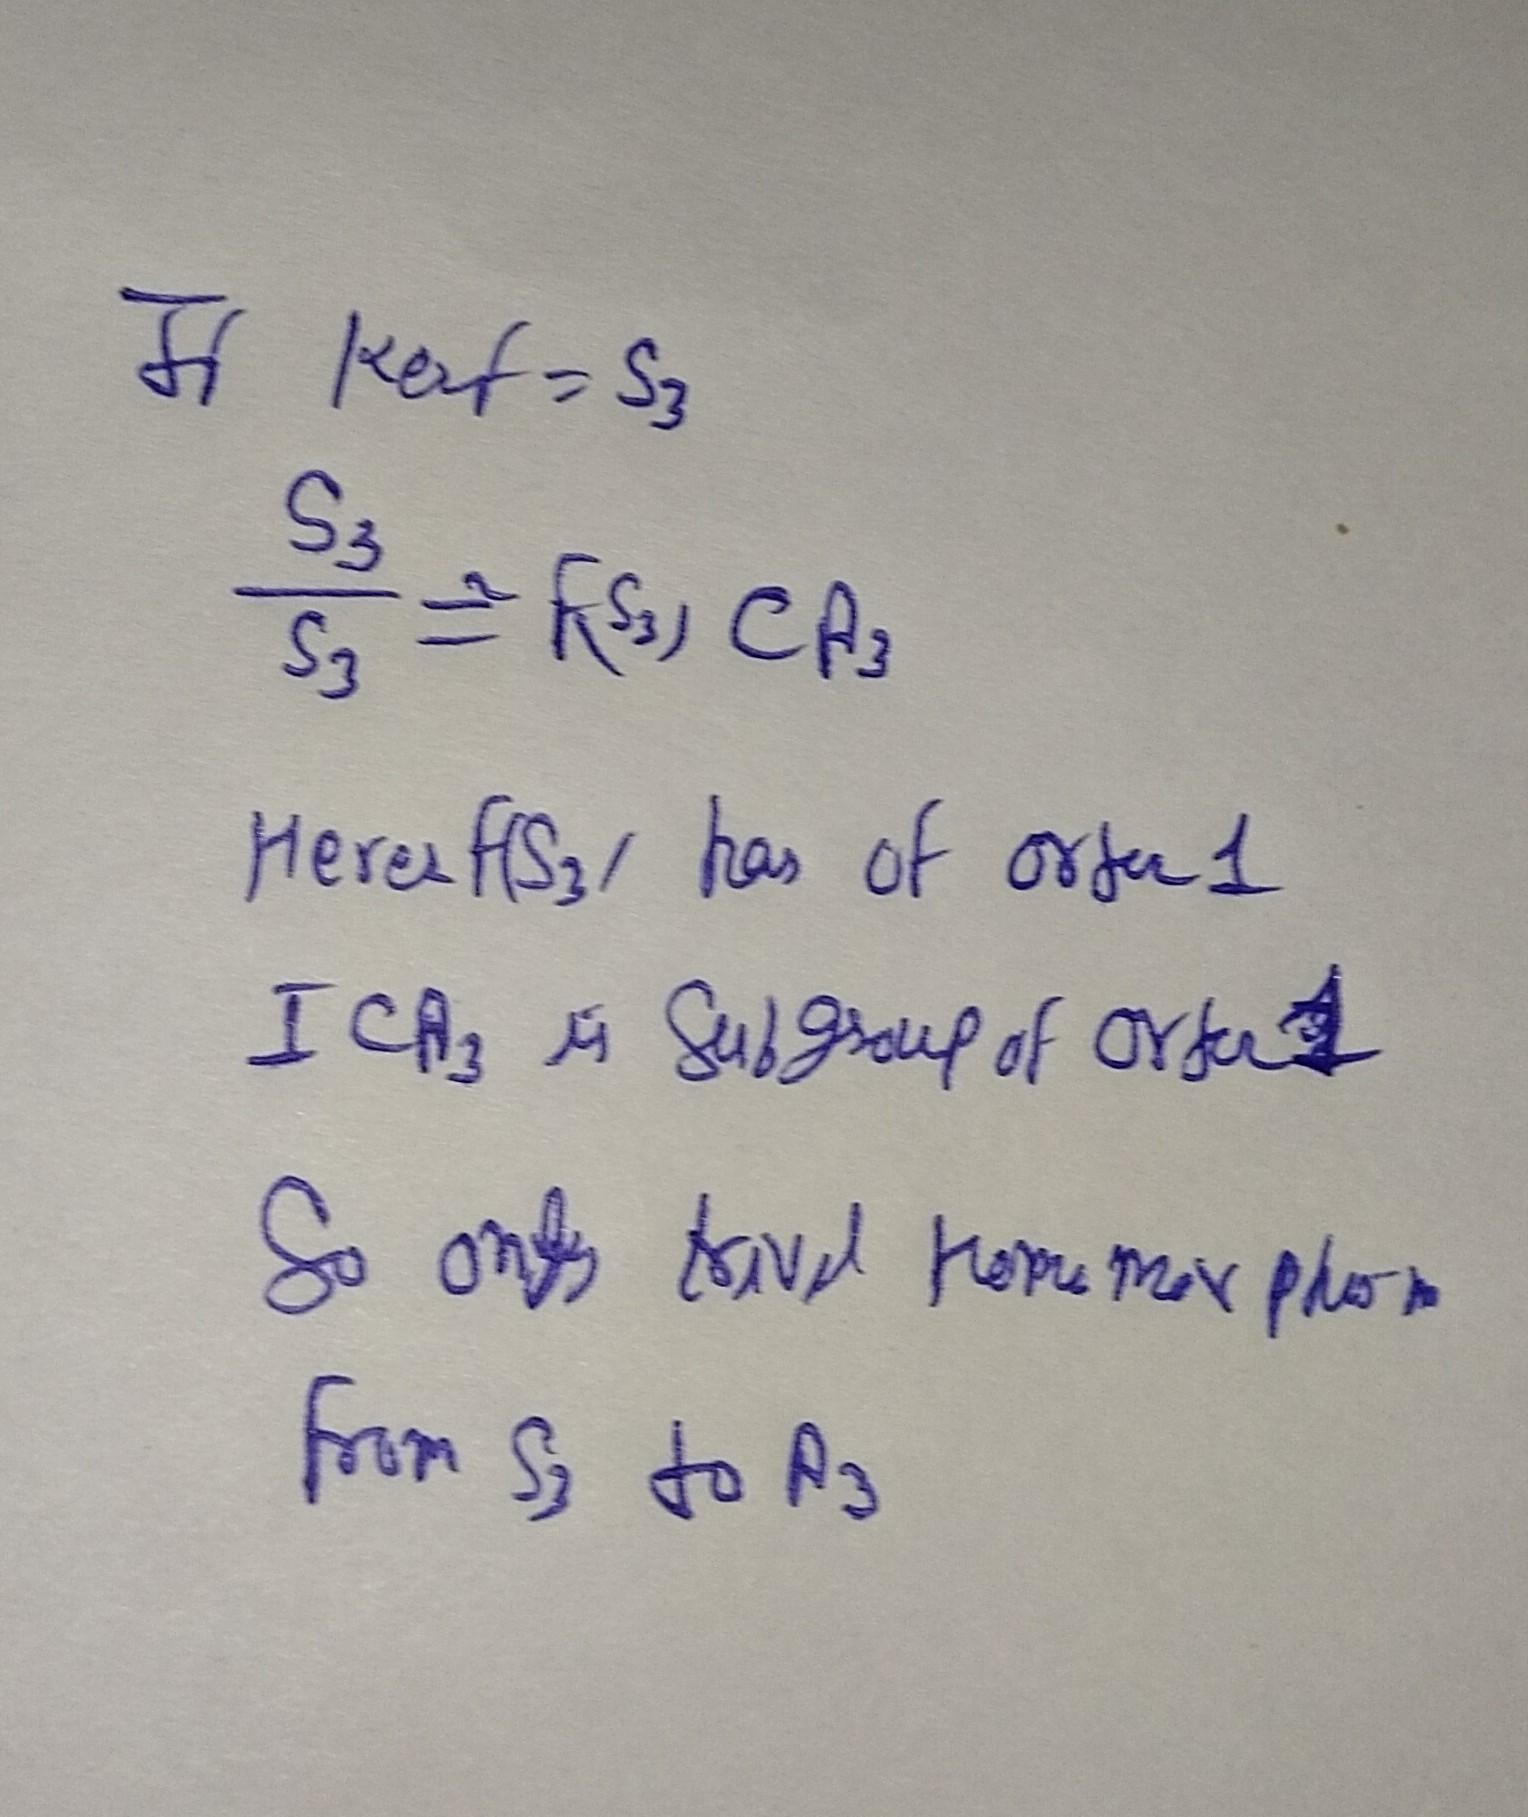 If Kerf = S₃
S₃
S₃ ≅ f(S₃) ⊂ A₃
Here f(S₃) has of order 1
I ⊂ A₃ is Subgroup of order 1
So only trivl Homomorphism
from S₃ to A₃